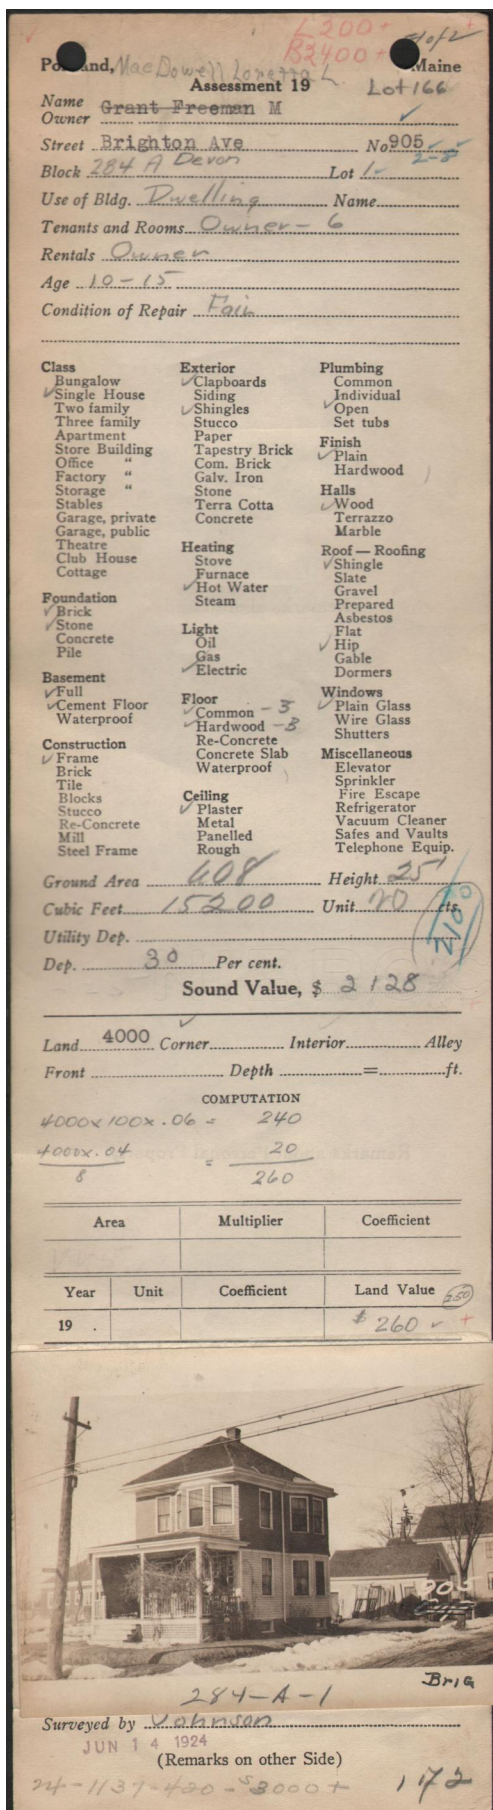 L200+
B2400+ 1 of 2
Portland, MacDowell Loretta L. Maine
Assessment 19 Lot 166
Name Owner Grant Freeman M
Street Brighton Ave No 905
2-8
Block 284 A Devon Lot 1-
Use of Bldg. Dwelling Name
Tenants and Rooms Owner - 6
Rentals Owner
Age 10-15
Condition of Repair Fair
Class
✓Bungalow
✓Single House
Two family
Three family
Apartment
Store Building
Office "
Factory "
Storage "
Stables
Garage, private
Garage, public
Theatre
Club House
Cottage
Foundation
✓Brick
✓Stone
Concrete
Pile
Basement
✓Full
✓Cement Floor
Waterproof
Construction
✓Frame
Brick
Tile
Blocks
Stucco
Re-Concrete
Mill
Steel Frame
Exterior
✓Clapboards
Siding
✓Shingles
Stucco
Paper
Tapestry Brick
Com. Brick
Galv. Iron
Stone
Terra Cotta
Concrete
Heating
Stove
Furnace
✓Hot Water
Steam
Light
Oil
Gas
✓Electric
Floor
✓Common - 3
✓Hardwood - 3
Re-Concrete
Concrete Slab
Waterproof
Ceiling
✓Plaster
Metal
Panelled
Rough
Plumbing
Common
Individual
✓Open
Set tubs
Finish
✓Plain
Hardwood
Halls
✓Wood
Terrazzo
Marble
Roof — Roofing
✓Shingle
Slate
Gravel
Prepared
Asbestos
Flat
✓Hip
Gable
Dormers
Windows
✓Plain Glass
Wire Glass
Shutters
Miscellaneous
Elevator
Sprinkler
Fire Escape
Refrigerator
Vacuum Cleaner
Safes and Vaults
Telephone Equip.
Ground Area 608 Height 25'
Cubic Feet 15200 Unit 20 cts.
2100
Utility Dep.
Dep. 30 Per cent.
Sound Value, $ 2128
Land 4000 Corner Interior Alley
Front Depth = ft.
COMPUTATION
4000x100x.06 = 240
4000x.04
8 = 20
260
Area Multiplier Coefficient
Year Unit Coefficient Land Value 250
19 . $ 260 ✓ +
905
284-A-1 BRIG
Surveyed by Johnson
JUN 14 1924
(Remarks on other Side)
24-1137-420-$3000+ 172